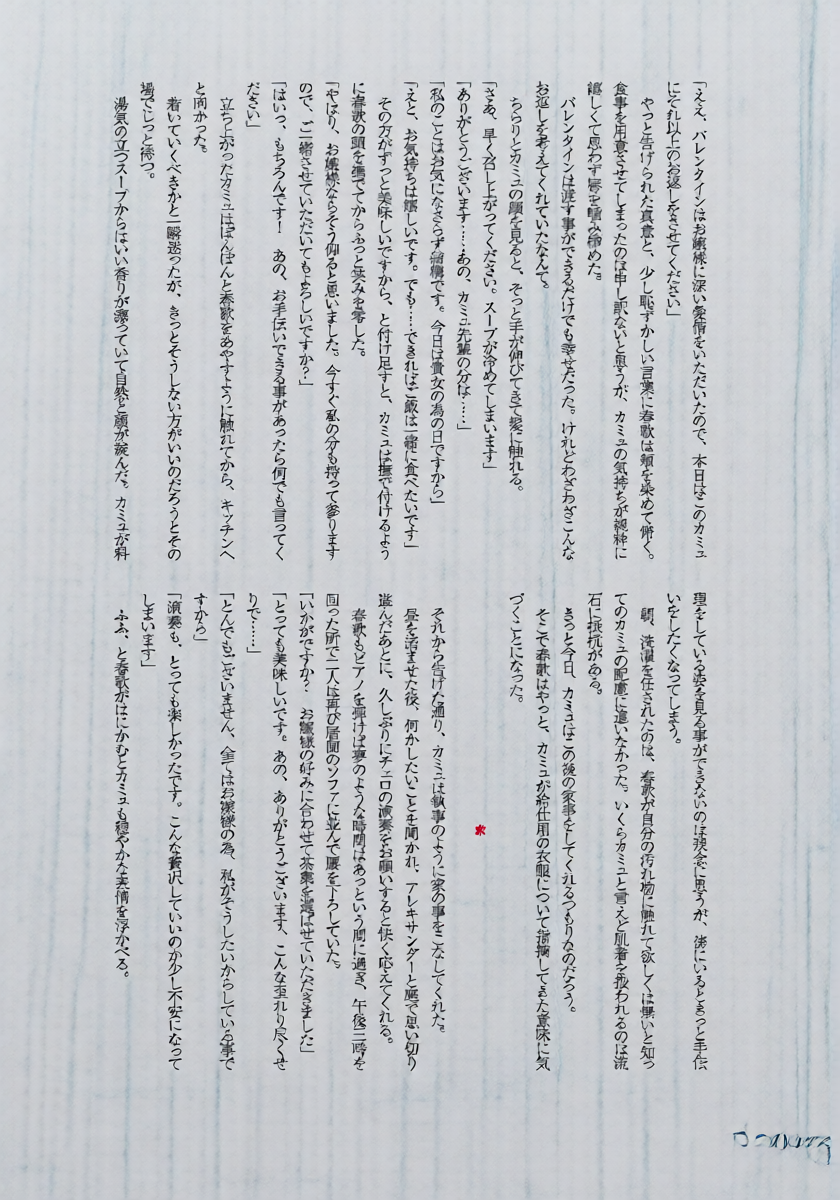 「ええ、バレンタインはお嬢様に深い愛情をいただいたので、本日はこのカミュ
にそれ以上のお返しをさせてください」
やっと告げられた真意と、少し恥ずかしい言葉に春歌は頬を染めて俯く。
食事を用意させてしまったのは申し訳ないと思うが、カミュの気持ちが純粋に
嬉しくて思わず唇を噛み締めた。
バレンタインは渡す事ができるだけでも幸せだった。けれどわざわざこんな
お返しを考えてくれていたなんて。
ちらりとカミュの顔を見ると、そっと手が伸びてきて髪に触れる。
「さあ、早く召し上がってください。スープが冷めてしまいます」
「ありがとうございます……あの、カミュ先輩の分は……」
「私のことはお気になさらず結構です。今日は貴女の為の日ですから」
「えと、お気持ちは嬉しいです。でも……できればご飯は一緒に食べたいです」
その方がずっと美味しいですから、と付け足すと、カミュは撫で付けるよう
に春歌の頭を撫でてからふっと笑みを零した。
「やはり、お嬢様ならそう仰ると思いました。今すぐ私の分も持って参ります
ので、ご一緒させていただいてもよろしいですか？」
「はいっ、もちろんです！　あの、お手伝いできる事があったら何でも言ってく
ださい」
立ち上がったカミュはぽんぽんと春歌をあやすように触れてから、キッチンへ
と向かった。
着いていくべきかと一瞬迷ったが、きっとそうしない方がいいのだろうとその
場でじっと待つ。
湯気の立つスープからはいい香りが漂っていて自然と顔が綻んだ。カミュが料
理をしている姿を見る事ができないのは残念に思うが、傍にいるときっと手伝
いをしたくなってしまう。
朝、洗濯を任されたのは、春歌が自分の汚れ物に触れて欲しくは無いと知っ
てのカミュの配慮に違いなかった。いくらカミュと言えど肌着を扱われるのは流
石に抵抗がある。
きっと今日、カミュはこの後の家事をしてくれるつもりなのだろう。
そこで春歌はやっと、カミュが給仕用の衣服について指摘してきた意味に気
づくことになった。
それから告げた通り、カミュは執事のように家の事をこなしてくれた。
昼を済ませた後、何かしたいことを聞かれ、アレキサンダーと庭で思い切り
遊んだあとに、久しぶりにチェロの演奏をお願いすると快く応えてくれる。
春歌もピアノを弾けば夢のような時間はあっという間に過ぎ、午後三時を
回った所で二人は再び居間のソファに並んで腰を下ろしていた。
「いかがですか？　お嬢様の好みに合わせて茶葉を選ばせていただきました」
「とっても美味しいです。あの、ありがとうございます、こんな至れり尽くせ
りで……」
「とんでもございません、全てはお嬢様の為、私がそうしたいからしている事で
すから」
「演奏も、とっても楽しかったです。こんな贅沢していいのか少し不安になって
しまいます」
ふふ、と春歌がはにかむとカミュも穏やかな表情を浮かべる。